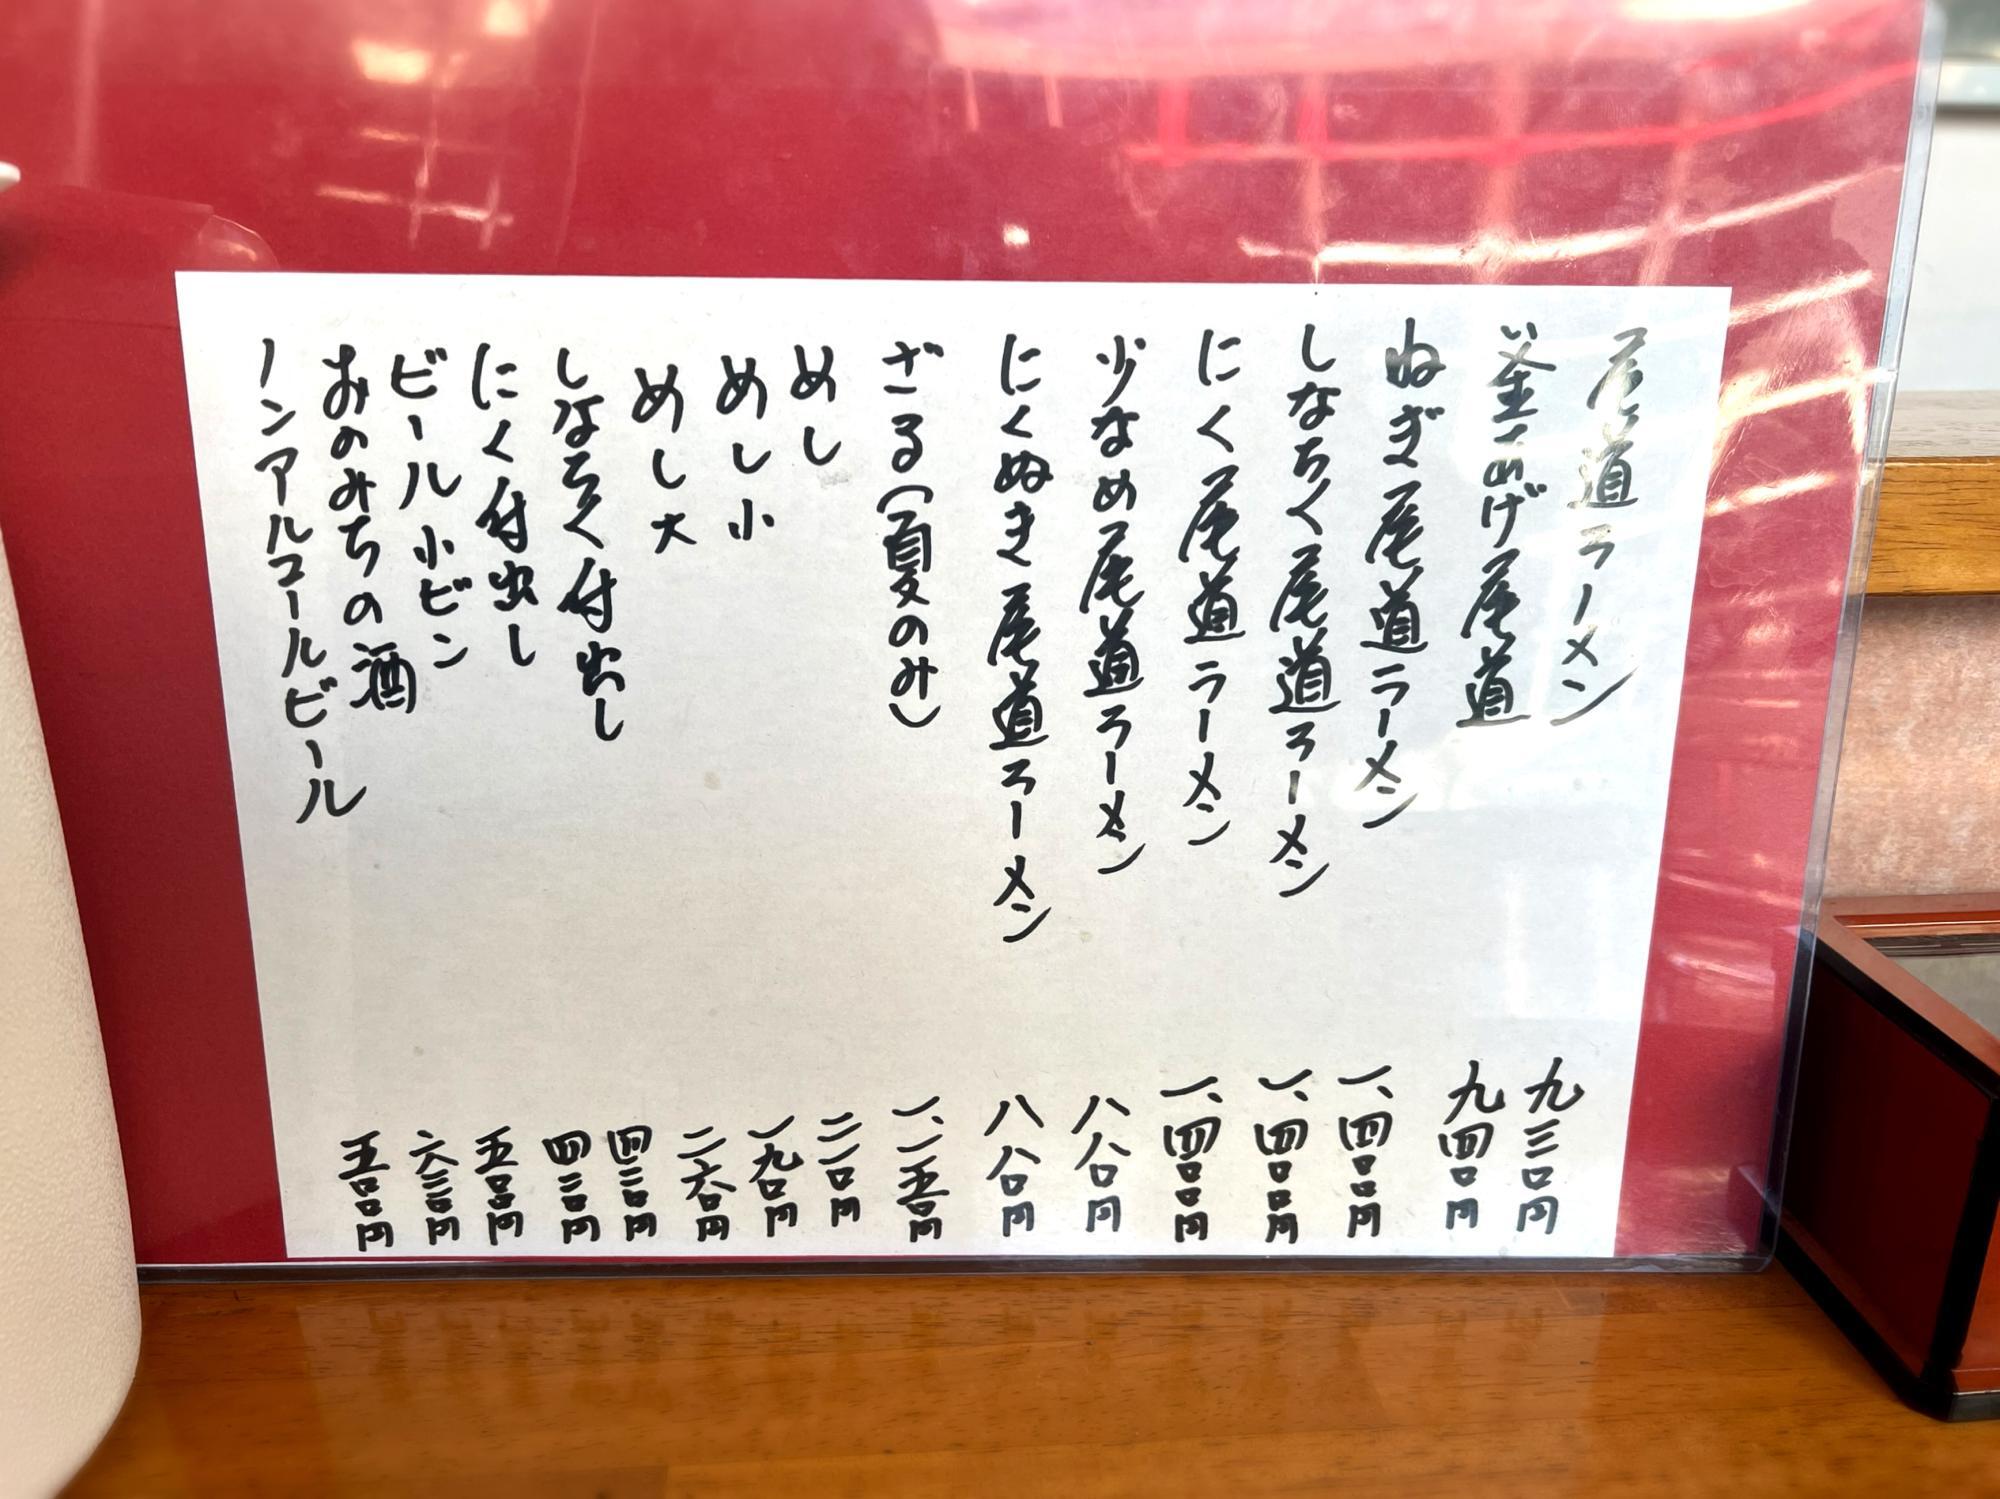 尾道ラーメン 九三〇円
釜あげ尾道 九四〇円
ねぎ尾道ラーメン 一、四〇〇円
しなちく尾道ラーメン 一、四〇〇円
にく尾道ラーメン 一、四〇〇円
少なめ尾道ラーメン 八八〇円
にくぬき尾道ラーメン 八八〇円
ざる(夏のみ) 一、一五〇円
めし 二一〇円
めし小 一九〇円
めし大 二六〇円
しなちく付出し 四三〇円
にく付出し 四三〇円
ビール小ビン 五〇〇円
おのみちの酒 六三〇円
ノンアルコールビール 五〇〇円